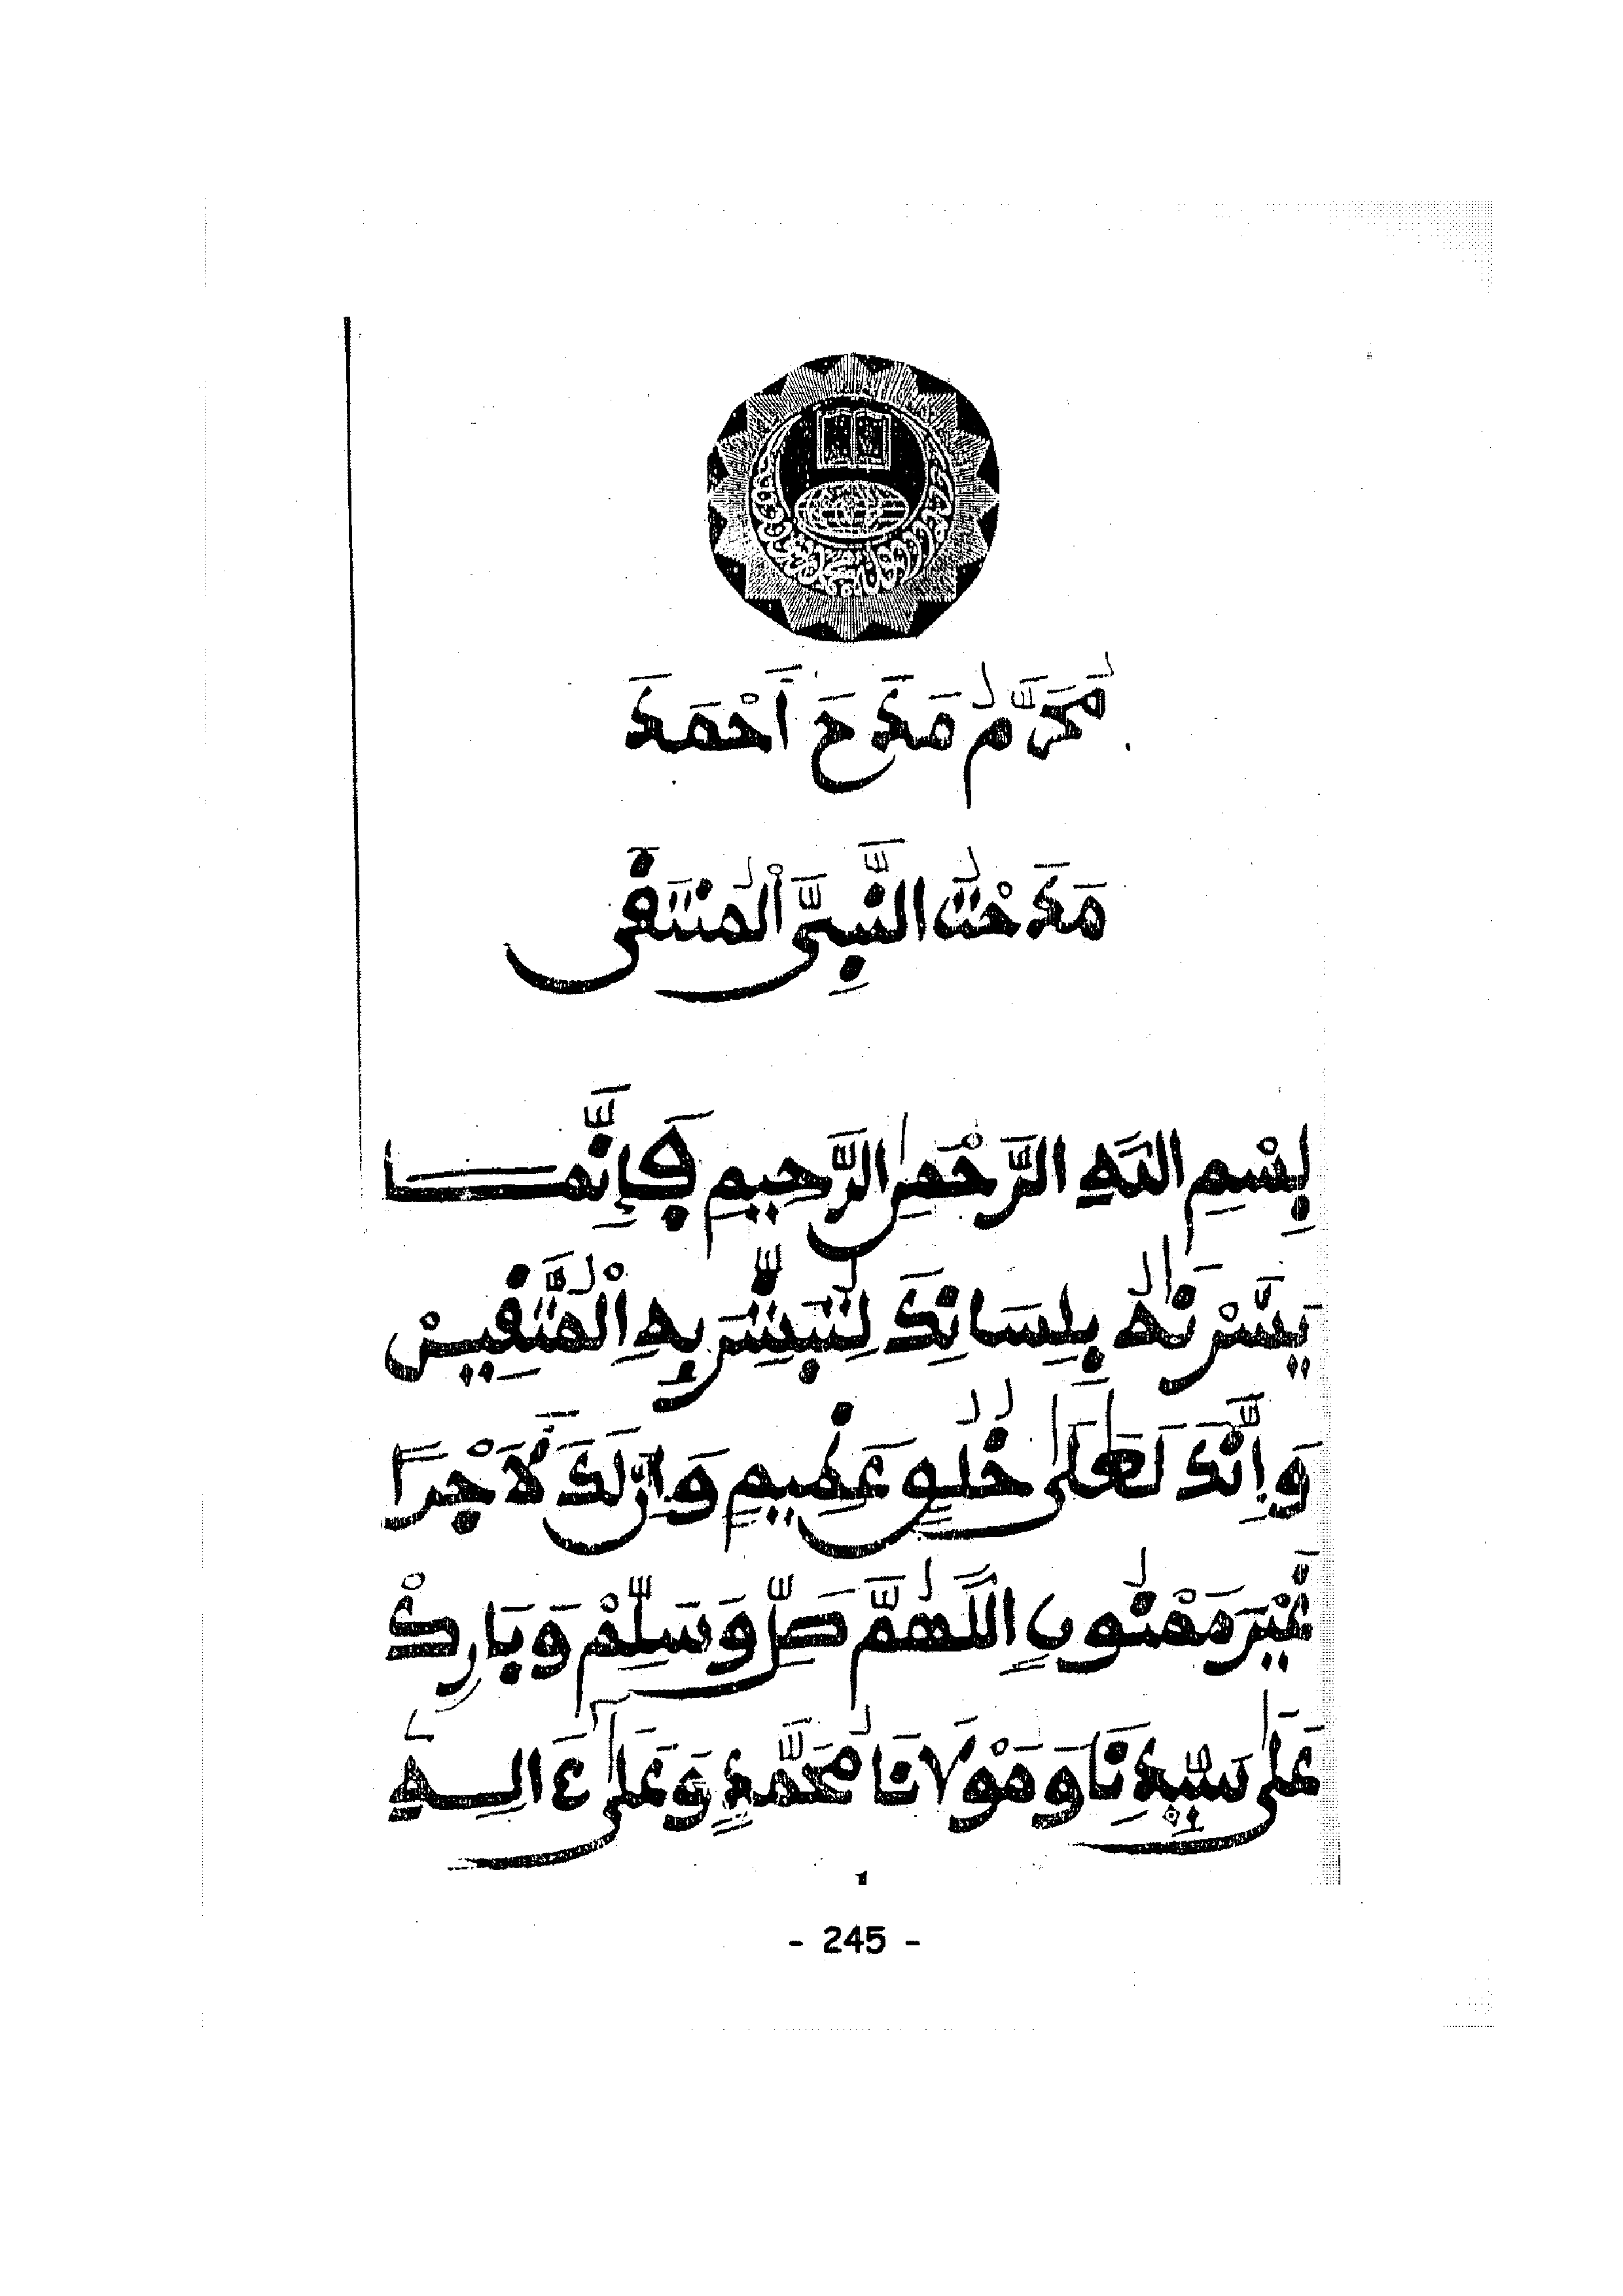 مُحَرَّمُ مَدَحَ أَحْمَدَ
مَدَحْتُ النَّبِيَّ الْمُنْتَقَى
بِسْمِ اللَّهِ الرَّحْمٰنِ الرَّحِيمِ فَإِنَّمَا
يَسَّرْنٰهُ بِلِسَانِكَ لِتُبَشِّرَ بِهِ الْمُتَّقِينَ
وَإِنَّكَ لَعَلَىٰ خُلُقٍ عَظِيمٍ وَإِنَّ لَكَ لَأَجْرًا
غَيْرَ مَمْنُونٍ اللَّهُمَّ صَلِّ وَسَلِّمْ وَبَارِكْ
عَلَىٰ سَيِّدِنَا وَمَوْلَانَا مُحَمَّدٍ وَعَلَىٰ ءَالِهِ
١
- 245 -